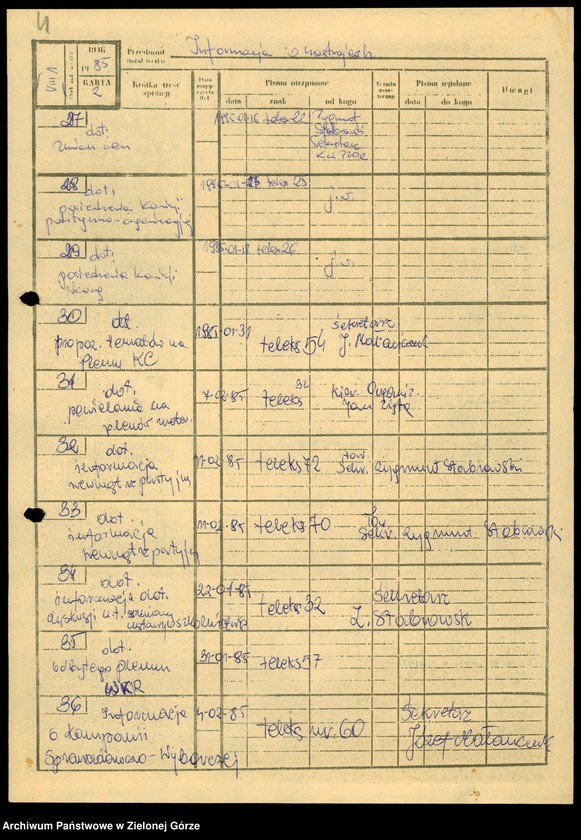 4
ROK
1985
KARTA
2
VIII/1
Przedmiot
Informacja o nastrojach
Krótka treść sprawy
Pisma otrzymane
data
znak
od kogo
Pisma wysłane
data
do kogo
Uwagi
27
dot.
zmian cen
1985-01-16 teleks 22
Zygmunt
Stabrowski
Sekretarz
KW PZPR
28
dot.
posiedzenia Komisji
polityczno-organizacyjnej
teleks 25
j.w.
29
dot.
posiedzenia Komisji
Skarg
1985-01-18 teleks 26
j.w.
30
dot.
propoz. tematów na
Plenum KC
1985-01-31
teleks 54
Sekretarz
31
dot.
powielania na
plenów mater.
7-02-85
teleks 32
32
dot.
informacja
wewnątrzpartyjna
11-02-85
teleks 72
tow.
Sekr. Zygmunt Stabrowski
33
dot.
informacja
wewnątrzpartyjna
11-02-85
teleks 70
Tow.
Sekr. Zygmunt Stabrowski
34
dot.
informacja dot.
dyskusji n.t. zmiany
22-01-85
teleks 32
Sekretarz
Z. Stabrowski
35
dot.
odbytego plenum
WKR
31-01-85
teleks 57
36
Informacja
o Kampanii
Sprawozdawczo-Wyborczej
4-02-85
teleks nr. 60
Sekretarz
Archiwum Państwowe w Zielonej Górze